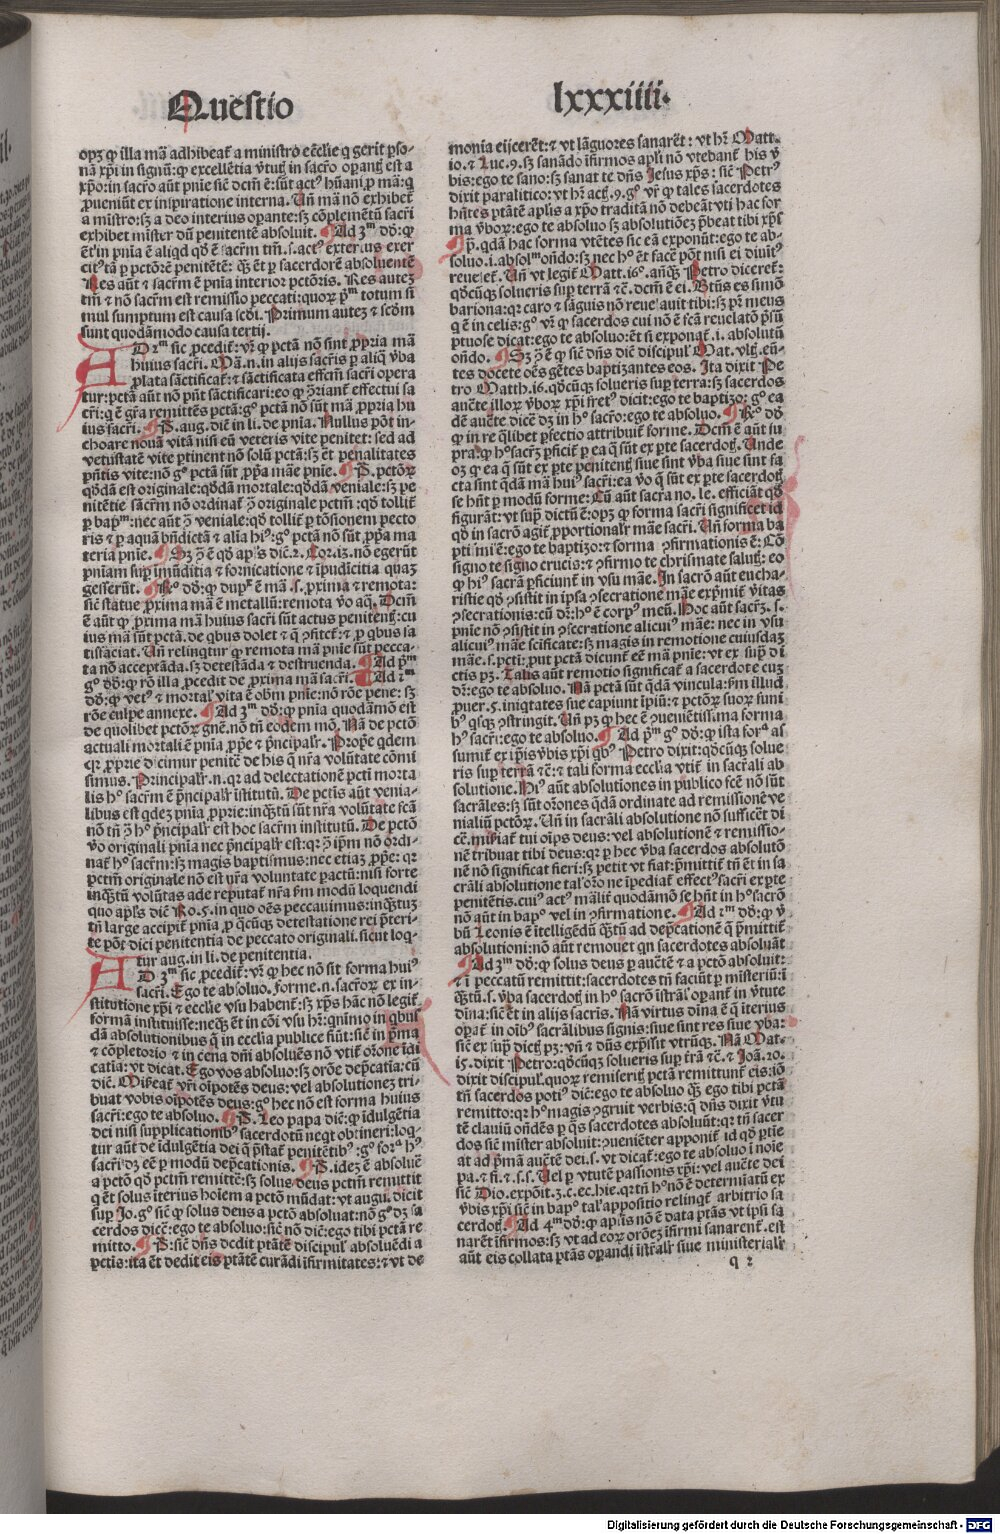 Questio
lxxxiiii.
opꝫ ꝙ illa mã adhibeat̃ a ministro ecc̃lie q gerit ꝑso-
nã xp̃i in signũ: ꝙ excellẽtia v̾tutꝭ in sacr̃o opantꝭ est a
xp̃o: in sacr̃o aũt pnĩe sic̃ dcm̃ ẽ: sũt act⁹ hũani ꝓ mã: q
ꝓueniũt ex inspiratione interna. Uñ mã nõ exhibet̃
a mĩstro: sꝫ a deo interius opante: sꝫ cõplemẽtũ sacr̃i
exhibet mĩster dũ penitentẽ absoluit. Ad 3ᵐ dõ: ꝙ
ẽt in pnĩa ẽ aliqd qð ẽ sacr̃m tm̃. s. act⁹ exteri⁹ exer
cit⁹ tã ꝑ pctõrẽ penitẽtẽ: qꝫ ẽt ꝑ sacerdotẽ absoluentẽ
Res aũt ⁊ sacr̃m ẽ pnĩa interior pctõris. Res autez
tm̃ ⁊ nõ sacr̃m est remissio peccati: quoꝝ pᵐ totum si
mul sumptum est causa scd̃i. Primum autez ⁊ scd̃m
sunt quodãmodo causa tertij.
AD 2ᵐ sic ꝓcedit̃: vr̃ ꝙ pctã nõ sint ꝓpria mã
huius sacr̃i. Mã. n. in alijs sacr̃is ꝑ aliq̃ v̾ba
ꝓlata sãctificat̃: ⁊ sãctificata effcm̃ sacr̃i opera
tur: pctã aũt nõ pñt sãctificari: eo ꝙ ꝯ̃riant̃ effectui sa
cr̃i: q ẽ gr̃a remittẽs pctã: gͦ pctã nõ sũt mã ꝓpria hu
ius sacr̃i. P̃. aug. dic̃ in li. de pnĩa. Nullus põt in-
choare nouã vitã nisi eũ veteris vite penitet: sed ad
vetustatẽ vite ꝑtinent nõ solũ pctã: sꝫ ẽt penalitates
pñtis vite: nõ gͦ pctã sũt ꝓp̃a mãe pnĩe. P̃. pctõꝝ
qðdã est originale: qðdã mortale: qðdã veniale: sꝫ pe
nitẽtie sacr̃m nõ ordinat̃ ꝯ̃ originale pctm̃: qð tollit̃
ꝑ bapᵐ: nec aũt ꝯ̃ veniale: qð tollit̃ ꝑ tõsionem pecto
ris ⁊ ꝑ aquã bñdictã ⁊ alia hi⁹: gͦ pctã nõ sũt ꝓp̃a ma
teria pnĩe. Sꝫ ꝯ̃ ẽ qð apl̃s dic̃. 2. Cor. 12. nõ egerũt
pñiam sup imũditia ⁊ fornicatione ⁊ ĩpudicitia quaꝫ
gesserũt. Rͦ dõ: ꝙ dup̃ ẽ mã. s. ꝓxima ⁊ remota:
sic̃ statue ꝓxima mã ẽ metallũ: remota v̾o aq̃. Dcm̃
ẽ aũt ꝙ ꝓxima mã huius sacr̃i sũt actus penitentꝭ: cu
ius mã sũt pctã. de qbus dolet ⁊ q̃ ꝯfitet̃: ⁊ ꝓ qbus sa
tisfaciat. Uñ relinqt̃ur ꝙ remota mã pnĩe sũt pecca-
ta nõ acceptãda. sꝫ detestãda ⁊ destruenda. Ad pᵐ
gͦ dõ: ꝙ rõ illa ꝓcedit de ꝓxima mã sacr̃i. Ad 2ᵐ
dõ: ꝙ vet⁹ ⁊ mortal̃ vita ẽ obm̃ pnĩe: nõ rõe pene: sꝫ
rõe culpe annexe. Ad 3ᵐ dõ: ꝙ pnĩa quodãmõ est
de quolibet pctõꝝ gnẽ. nõ tñ eodem mõ. Nã de pctõ
actuali mortali ẽ pnĩa ꝓp̃e ⁊ pͥncipalr̃. Prop̃e qdem
qꝛ ꝓprie dicimur penitẽ de his q̃ nr̃a volũtate cõmi
simus. Principalr̃. n. qꝛ ad delectationẽ pcti morta
lis hͦ sacr̃m ẽ pͥncipalr̃ ĩstitutũ. De pctis aũt venia-
libus est qdez pnĩa ꝓprie: inqꝫtũ sũt nr̃a volũtate fcã
nõ tñ ꝯ̃ hͦ pͥncipalr̃ est hoc sacr̃m institutũ. De pctõ
v̾o originali pnĩa nec pͥncipalr̃ est: qꝛ ꝯ̃ ip̃m nõ ordi-
nat̃ hͦ sacr̃m: sꝫ magis baptismus: nec etiaꝫ ꝓp̃e: qꝛ
pctm̃ originale nõ est nr̃a voluntate ꝑactũ: nisi forte
inqꝫtũ volũtas ade reputat̃ nr̃a scd̃m modũ loquendi
quo apl̃s dic̃ Ro. 5. in quo oẽs peccauimus: inqꝫtuꝫ
tñ large accipit̃ pnĩa ꝓ qcũqꝫ detestatione rei pͥteri-
te põt dici penitentia de peccato originali. sicut loq̃-
tur aug. in li. de penitentia.
AD 3ᵐ sic ꝓcedit̃: vr̃ ꝙ hec nõ sit forma hui⁹
sacr̃i. Ego te absoluo. forme. n. sacr̃oꝝ ex in-
stitutione xp̃i ⁊ ecclie vsu habent̃: sꝫ xp̃s hãc nõ legit̃
formã instituisse: neqꝫ ẽt in cõi vsu hr̃: qnĩmo in qbus
dã absolutionibus q̃ in ecclia publice fiũt: sic̃ in pͥma
⁊ cõpletorio ⁊ in cena dñi absoluẽs nõ vtit̃ orõne ĩdi
catia: vt dicat. Ego vos absoluo: sꝫ orõe dep̃catia: cũ
dic̃. Mis̃eat̃ vr̃i oĩpotẽs deus: vel absolutionez tri-
buat vobis oĩpotẽs deus: gͦ hec nõ est forma huius
sacr̃i: ego te absoluo. P̃. Leo papa dic̃: ꝙ ĩdulgẽtia
dei nisi supplicationib⁹ sacerdotũ neqt obtineri: loq̃-
tur aũt de ĩdulgẽtia dei q̃ pͥstat̃ penitẽtib⁹: gͦ forᵃ h⁹
sacr̃i dꝫ eẽ ꝑ modũ dep̃cationis. P̃. idez ẽ absoluẽ
a pctõ qð pctm̃ remittẽ: sꝫ solus deus pctm̃ remittit
q ẽt solus ĩterius hoĩem a pctõ mũdat: vt augu. dicit
sup Jo. gͦ sic̃ ꝙ solus deus a pctõ absoluat: nõ gͦ dꝫ sa
cerdos dicẽ: ego te absoluo: sic̃ nõ dic̃: ego tibi pctã re
mitto. P̃: sic̃ dñs dedit ptãtẽ discipul̃ absoluẽdi a
pctis: ita ẽt dedit eis ptãtẽ curãdi ĩfirmitates: ⁊ vt de
monia eijcerẽt: ⁊ vt lãguores sanarẽt: vt hr̃ Matt.
10. ⁊ Luc. 9. sꝫ sanãdo ĩfirmos apl̃i nõ vtebant̃ his v̾
bis: ego te sano: sꝫ sanat te dñs Jesus xp̃s: sic̃ Petr⁹
dixit paralitico: vt hr̃ actꝭ. 9. gͦ vr̃ ꝙ tales sacerdotes
hñtes ptãtẽ aplis a xp̃o traditã nõ debeãt vti hac for
ma v̾boꝝ: ego te absoluo sꝫ absolutiõez pͥbeat tibi xp̃s
P̃. qdã hac forma vtẽtes sic eã exponũt: ego te ab-
soluo. i. absolᵐ oñdo: sꝫ nec hͦ ẽt facẽ põt nisi ei diuit⁹
reuelet̃. Uñ vt legit̃ Matt. 16ͦ. anq̃ꝫ Petro diceret̃:
qðcũqꝫ solueris sup terrã ⁊c̃. dcm̃ ẽ ei. Btũs es simõ
bariona: qꝛ caro ⁊ sãguis nõ reuelauit tibi: sꝫ pr̃ meus
q ẽ in celis: gͦ vr̃ ꝙ sacerdos cui nõ ẽ fcã reuelatõ pͥsũ
ptuose dicat: ego te absoluo: ẽt si exponat̃. i. absolutũ
oñdo. Sꝫ ꝯ̃ ẽ ꝙ sic̃ dñs dic̃ discipul̃ Mat. vltꝭ. eũ-
tes docete oẽs gẽtes baptizantes eos. Ita dixit Pe
tro Matth. 16. qðcũqꝫ solueris sup terra: sꝫ sacerdos
aucte illoꝝ v̾boꝝ xp̃i fret⁹ dicit: ego te baptizo: gͦ ea
dẽ aucte dicẽ dꝫ in hͦ sacr̃o: ego te absoluo. Rͦ dõ
ꝙ in re qlibet ꝑfectio attribuit̃ forme. Dcm̃ ẽ aũt su
pra: ꝙ hͦ sacr̃ꝫ ꝑficit̃ ꝑ ea q̃ sũt ex ꝑte sacerdotꝭ. Unde
oꝫ ꝙ ea q̃ sũt ex ꝑte penitentꝭ siue sint v̾ba siue sint fa
cta sint qdã mã hui⁹ sacr̃i: ea v̾o q̃ sũt ex ꝑte sacerdotꝭ
se hñt ꝑ modũ forme: Cũ aũt sacr̃a no. le. efficiãt qð
figurãt: vt sup̃ dictũ ẽ: opꝫ ꝙ forma sacr̃i significet id
qð in sacr̃o agit̃ ꝓportionalr̃ mãe sacr̃i. Uñ forma ba
ptiᵐi ẽ: ego te baptizo: ⁊ forma ꝯfirmationis ẽ: Cõ
signo te signo crucis: ⁊ ꝯfirmo te chrismate salutꝭ: eo
ꝙ hi⁹ sacr̃a ꝑficiunt̃ in vsu mãe. In sacr̃o aũt eucha-
ristie qð ꝯsistit in ip̃sa ꝯsecratione mãe exp̃mit̃ v̾itas
ꝯsecrationis: cũ dr̃: hͦ ẽ corp⁹ meũ. Hoc aũt sacr̃ꝫ. s.
pnĩe nõ ꝯsistit in ꝯsecratione alicui⁹ mãe: nec in vsu
alicui⁹ mãe scificate: sꝫ magis in remotione cuiusdaꝫ
mãe. s. pcti: prout pctã dicunt̃ eẽ mã pnĩe: vt ex sup̃ di
ctis pꝫ. Talis aũt remotio significat̃ a sacerdote cuꝫ
dr̃: ego te absoluo. Nã pctã sũt qdã vincula: scd̃m illud
ꝓuer. 5. iniqtates sue capiunt ĩpiũ: ⁊ pctõꝝ suoꝝ funi
b⁹ qsqꝫ ꝯstringit̃. Uñ pꝫ ꝙ hec ẽ ꝯueniẽtissima forma
h⁹ sacr̃i: ego te absoluo. Ad pᵐ gͦ dõ: ꝙ ista forᵃ as
sumit̃ ex ip̃is v̾bis xp̃i qb⁹ Petro dixit: qðcũqꝫ solue
ris sup terrã ⁊c̃: ⁊ tali forma ecclia vtit̃ in sacr̃ali ab
solutione. Hi⁹ aũt absolutiones in publico fcẽ nõ sũt
sacr̃ales: sꝫ sũt orõnes qdã ordinate ad remissionẽ ve
nialiũ pctõꝝ. Uñ in sacr̃ali absolutione nõ sufficẽt di
cẽ. mis̃eat̃ tui oĩps deus: vel absolutionẽ ⁊ remissio-
nẽ tribuat tibi deus: qꝛ ꝑ hec v̾ba sacerdos absolutõ
nẽ nõ significat fieri: sꝫ petit vt fiat: pͥmittit̃ tñ ẽt in sa
cr̃ali absolutione tal̃ orõ ne ĩpediat̃ effect⁹ sacr̃i ex ꝑte
penitẽtis. cui⁹ act⁹ mãlit̃ quodãmõ se hñt in hͦ sacr̃o
nõ aũt in bapᵒ vel in ꝯfirmatione. Ad 2ᵐ dõ: ꝙ v̾
bũ Leonis ẽ ĩtelligẽdũ qꝫtũ ad dep̃cationẽ q̃ pͥmittit̃
absolutioni: nõ aũt remouet qn sacerdotes absoluãt
Ad 3ᵐ dõ: ꝙ solus deus ꝑ auctẽ ⁊ a pctõ absoluit:
⁊ ĩ peccatũ remittit: sacerdotes tñ faciũt ꝑ misteriũ: ĩ
qꝫtũ. s. v̾ba sacerdotꝭ in hͦ sacr̃o ĩstr̃alr̃ opant̃ in v̾tute
diĩa: sic̃ ẽt in alijs sacr̃is. Nã virtus diĩa ẽ q̃ ĩterius
opat̃ in oĩb⁹ sacr̃alibus signis: siue sint res siue v̾ba:
sic̃ ex sup̃ dictꝭ pꝫ: vñ ⁊ dñs exp̃ssit vtrũqꝫ. Nã Mat-
15. dixit Petro: qðcũqꝫ solueris sup trã ⁊c̃. ⁊ Joã. 20.
dixit discipul̃. quoꝝ remiseritꝭ pctã remittunt̃ eis: iõ
tñ sacerdos poti⁹ dic̃: ego te absoluo qꝫ ego tibi pctã
remitto: qꝛ hͦ magis ꝯgruit verbis: q̃ dñs dixit v̾tu
tẽ clauiũ oñdẽs ꝑ q̃s sacerdotes absoluũt: qꝛ tñ sacer
dos sic̃ mĩster absoluit: ꝯueniẽter apponit̃ id qð ꝑtĩe
at ad pͥmã auctẽ dei. s. vt dicat̃: ego te absoluo ĩ noĩe
pa. ⁊ fi. ⁊ s. s. Uel ꝑ v̾tutẽ passionis xp̃i: vel aucte dei
sic̃ Dio. expõit. 3. c. ec. hie. qꝛ tñ hͦ nõ ẽ determĩatũ ex
v̾bis xp̃i sic̃ in bapᵒ tal̃ appositio relinqt̃ arbitrio sa
cerdotꝭ. Ad 4ᵐ dõ: ꝙ aplis nõ ẽ data ptãs vt ip̃si sa
narẽt ĩfirmos: sꝫ vt ad eoꝝ orõez ĩfirmi sanarent̃. est
aũt eis collata ptãs opandi ĩstr̃alr̃ siue ministerialr̃
q 2
Digitalisierung gefördert durch die Deutsche Forschungsgemeinschaft - DFG